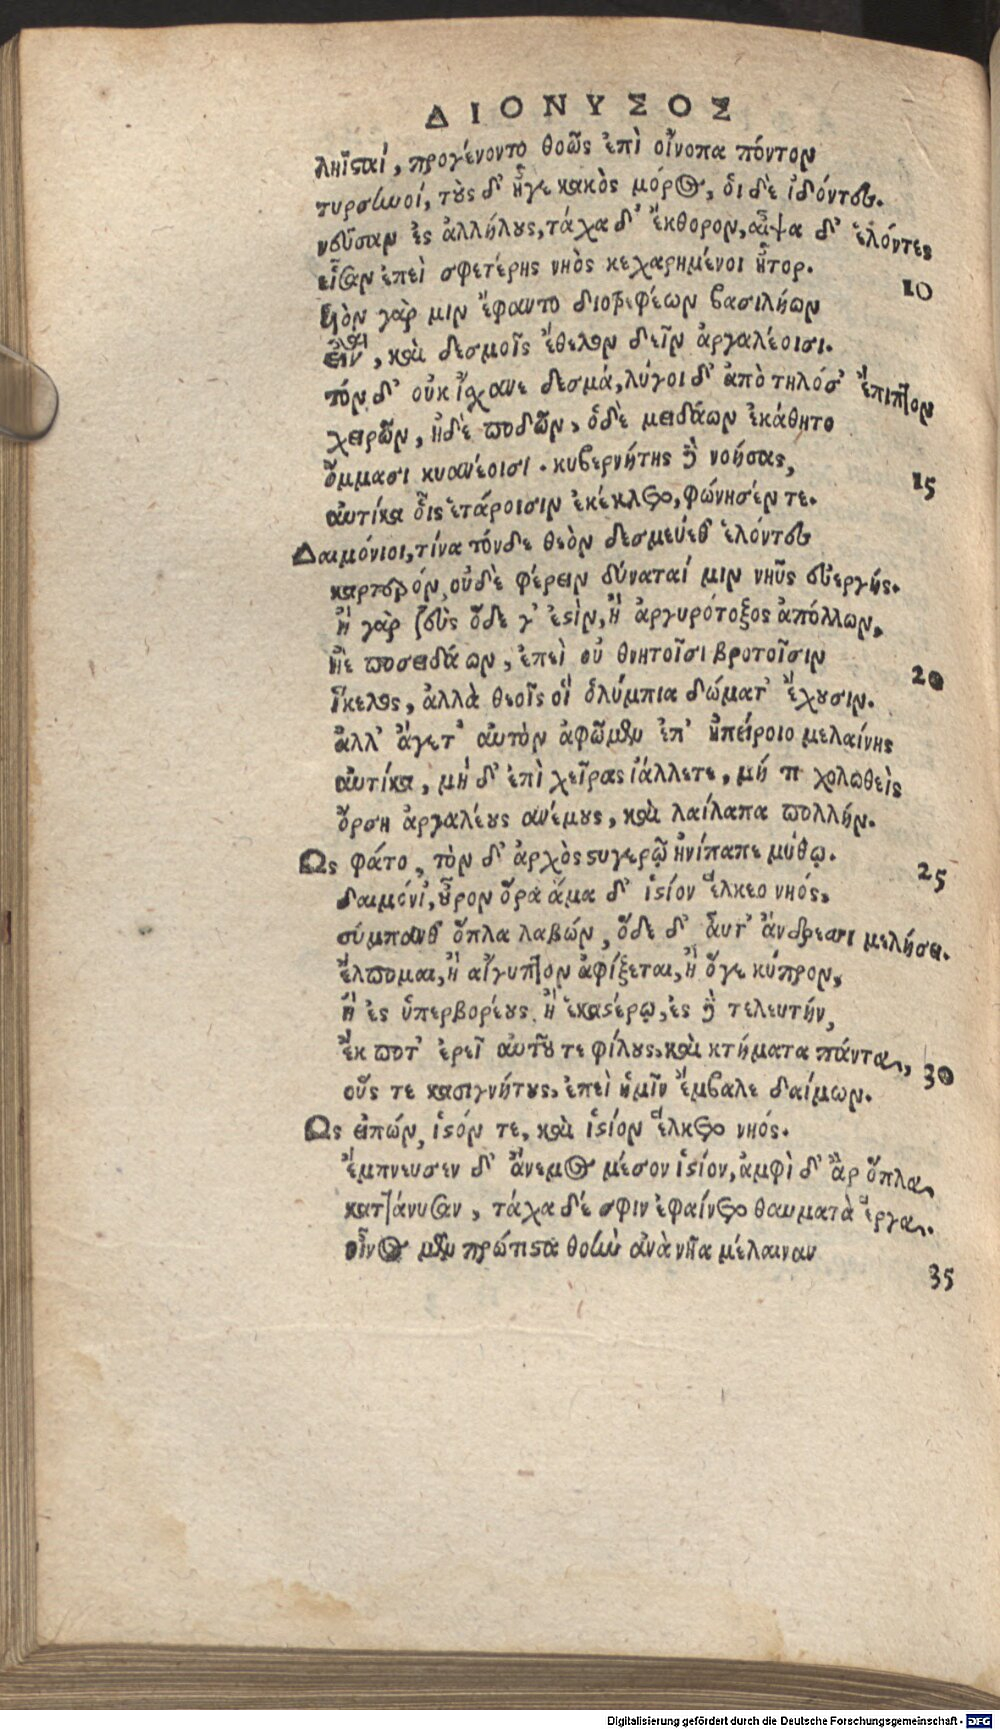 ΔΙΟΝΥΣΟΣ
ληϊσταί, προγένοντο θοῶς ἐπὶ οἴνοπα πόντον
τυρσηνοί, τοὺς δ' ἦγε κακὸς μόρος, ὁι δὲ ἰδόντες.
νεῦσαν ἐς ἀλλήλους, τάχα δ' ἔκθορον, αἶψα δ' ἑλόντες
εἷσαν ἐπεὶ σφετέρης νηὸς κεχαρημένοι ἦτορ. 10
ὑὸν γάρ μιν ἔφαντο διοτρεφέων βασιλήων
εἶναι, καὶ δεσμοῖς ἔθελον δεῖν ἀργαλέοισι.
τόν δ' οὐκ ἴσχανε δεσμά, λύγοι δ' ἀπὸ τηλόσ' ἔπιπτον
χειρῶν, ἠδὲ ποδῶν, ὁδὲ μειδάων ἐκάθητο
ὄμμασι κυανέοισι. κυβερνήτης δὲ νοήσας, 15
αὐτίκα οἷς ἑτάροισιν ἐκέκλετο, φώνησέν τε.
Δαιμόνιοι, τίνα τόνδε θεὸν δεσμεύεθ' ἑλόντες
καρτερόν, οὐδὲ φέρειν δύναταί μιν νηῦς εὐεργής.
ἢ γὰρ ζεὺς ὅδε γ' ἐστὶν, ἢ ἀργυρότοξος ἀπόλλων,
ἠὲ ποσειδάων, ἐπεὶ οὐ θνητοῖσι βροτοῖσιν 20
ἴκελος, ἀλλὰ θεοῖς οἵ ὀλύμπια δώματ' ἔχουσιν.
ἀλλ' ἄγετ' αὐτὸν ἀφῶμεν ἐπ' ἠπείροιο μελαίνης
αὐτίκα, μὴ δ' ἐπὶ χεῖρας ἰάλλετε, μή τι χολωθεὶς
ὄρση ἀργαλέους ἀνέμους, καὶ λαίλαπα πολλήν.
Ως φάτο, τὸν δ' ἀρχὸς στυγερῷ ἠνίπαπε μύθῳ. 25
δαιμόνι', οὖρον ὅρα ἅμα δ' ἱστίον ἕλκεο νηός,
σύμπανθ' ὅπλα λαβών, ὅδε δ' αὖτ' ἄνδρεσσι μελήσει.
ἔλπομαι, ἢ αἴγυπτον ἀφίξεται, ἢ ὅγε κύπρον,
ἢ ἐς ὑπερβορέους ἢ ἑκαστέρω, ἐς δὲ τελευτήν,
ἔκ ποτ' ἐρεῖ αὐτοῦ τε φίλους, καὶ κτήματα πάντα, 30
οὕς τε κασιγνήτους, ἐπεὶ ἡμῖν ἔμβαλε δαίμων.
Ως εἰπών, ἱστόν τε, καὶ ἱστίον ἕλκετο νηός.
ἔμπνευσεν δ' ἄνεμος μέσον ἱστίον, ἀμφὶ δ' ἂρ ὅπλα
κατ]άνυσαν, τάχα δέ σφιν ἐφαίνετο θαυματὰ ἔργα.
οἶνος μὲν πρώτιστα θοὴν ἀνὰ νῆα μέλαιναν 35
Digitalisierung gefördert durch die Deutsche Forschungsgemeinschaft - DFG